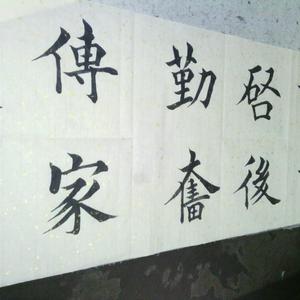 啓後
勤奮
傳家